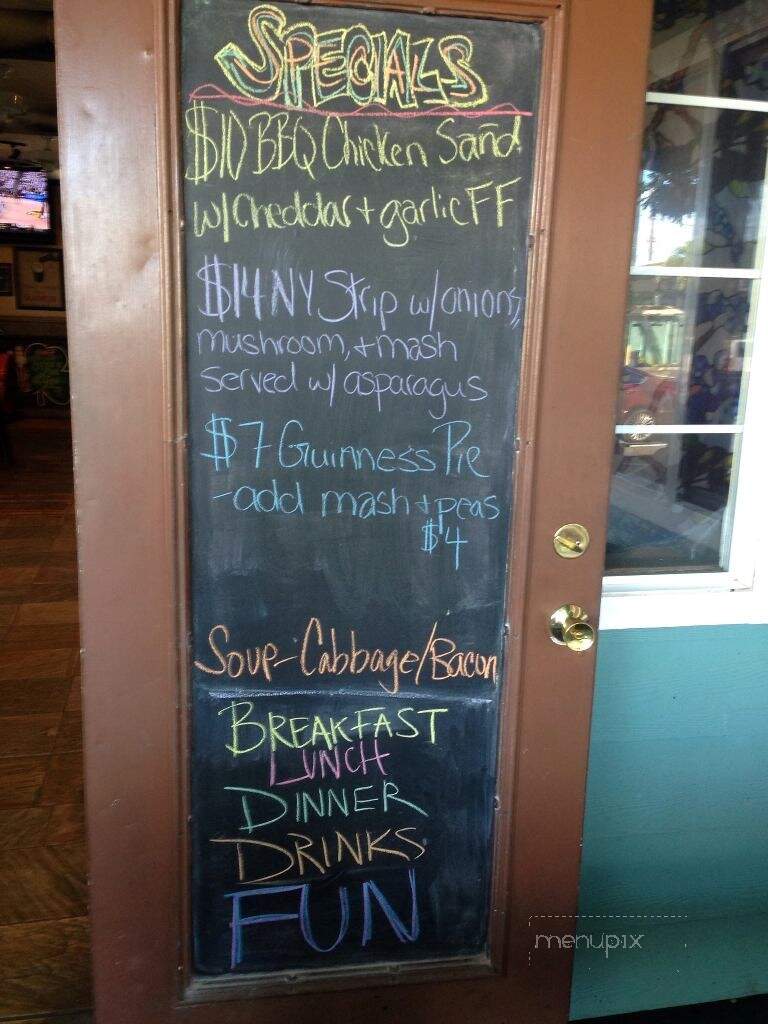 SPECIALS
$10 BBQ Chicken Sand
w/ Cheddar + garlic FF
$14 NY Strip w/ onions,
mushroom, + mash
served w/ asparagus
$7 Guinness Pie
-add mash + peas
$4
Soup- Cabbage/Bacon
BREAKFAST
LUNCH
DINNER
DRINKS
FUN
menupix